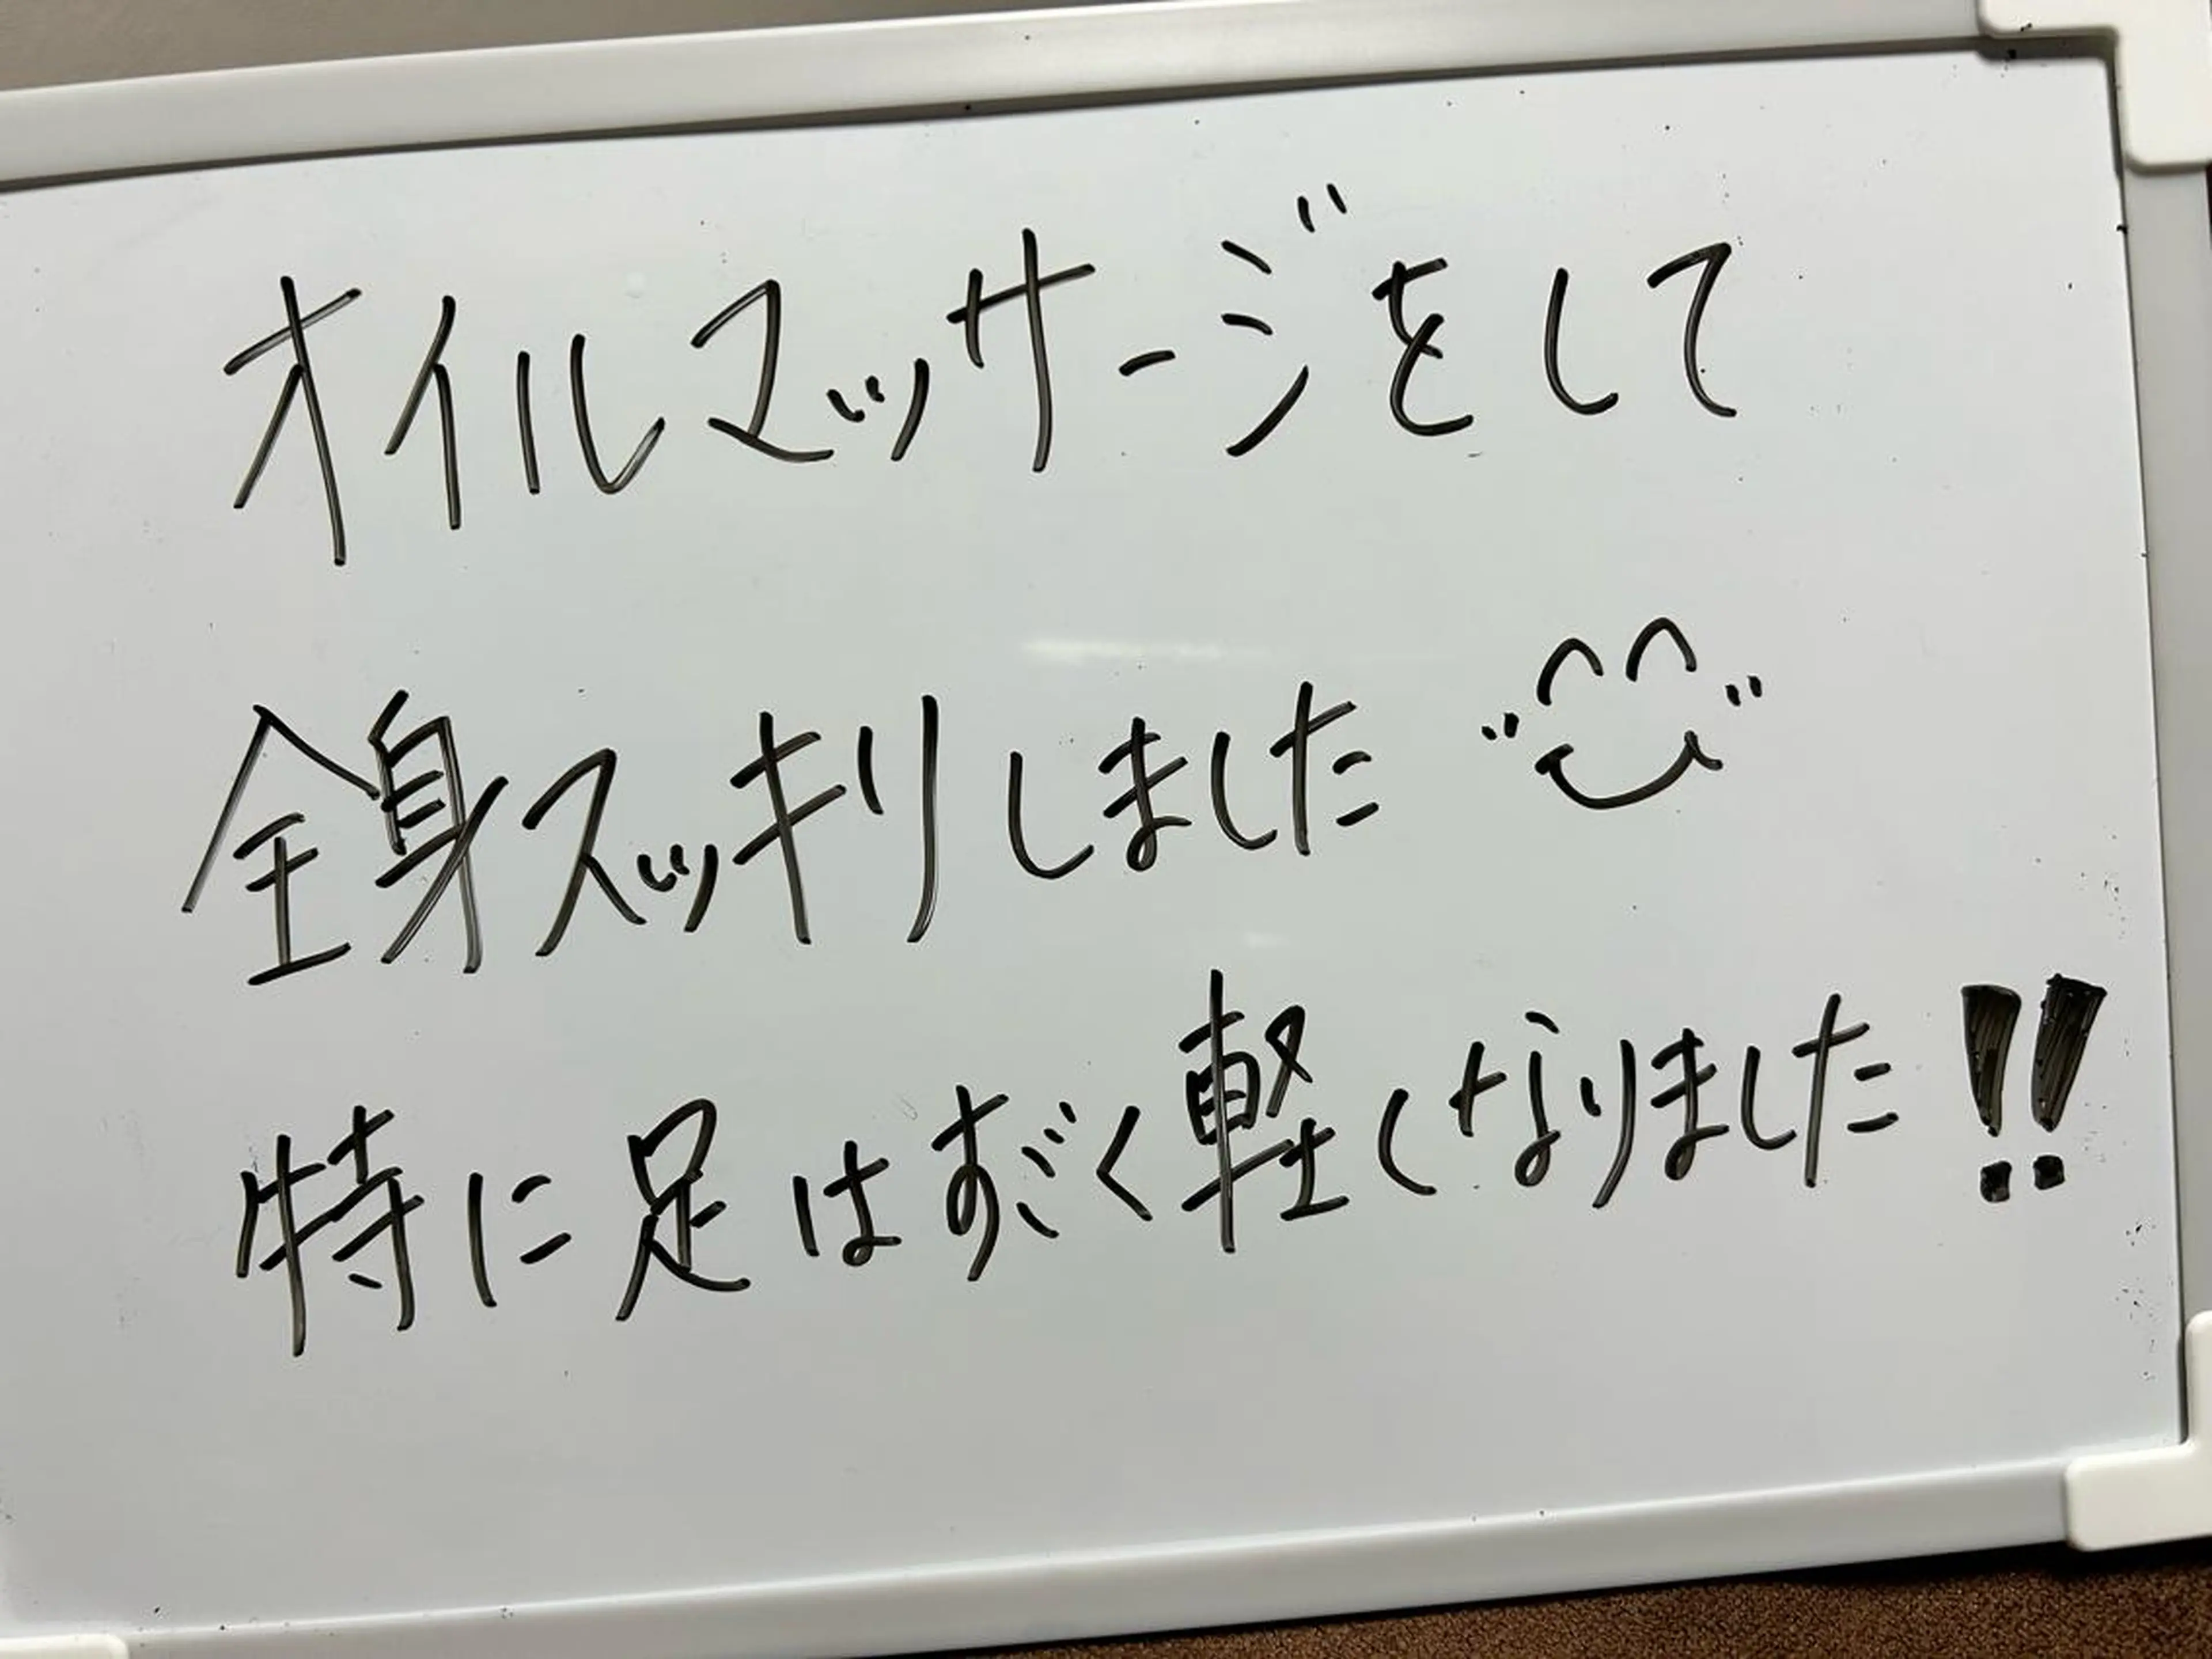 オイルマッサージをして
全身スッキリしました
特に足はすごく軽くなりました!!